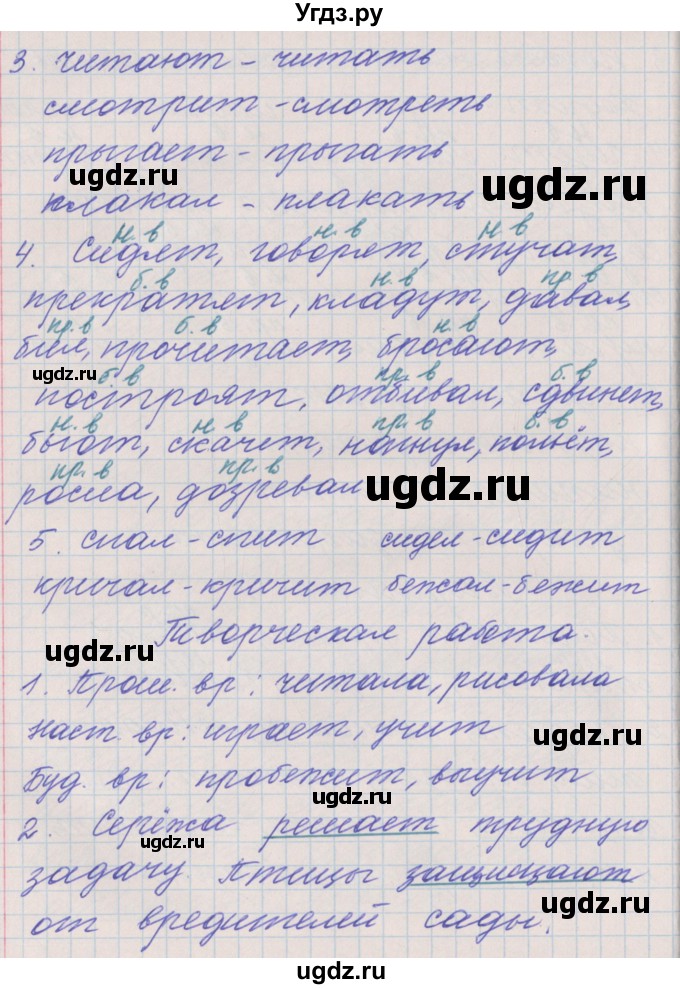 Угдз.ру
3. читают - читать
смотрит - смотреть
прыгает - прыгать
ugdz.ru ugdz.ru
плакал - плакать
н.в н.в н.в
4. Сидят, говорят, стучат,
б.в н.в пр.в
прекратят, кладут, давал,
пр.в б.в н.в
бил, прочитает, бросают,
ugdz.ru ugdz.ru
б.в пр.в б.в
построят, отбивал, сдвинет,
н.в н.в пр.в б.в
бьют, скачет, польёт,
пр.в пр.в
росла, дозревал
ugdz.ru
5. спал - спит сидел - сидит
кричал - кричит бежал - бежит
ugdz.ru ugdz.ru
Творческая работа.
1. Прош. вр: читала, рисовала
Наст. вр: играет, учит
ugdz.ru
Буд. вр: пробежит, выучит
ugdz.ru
2. Серёжа решает трудную
ugdz.ru
задачу. Птицы защищают
ugdz.ru
от вредителей сады.
ugdz.ru